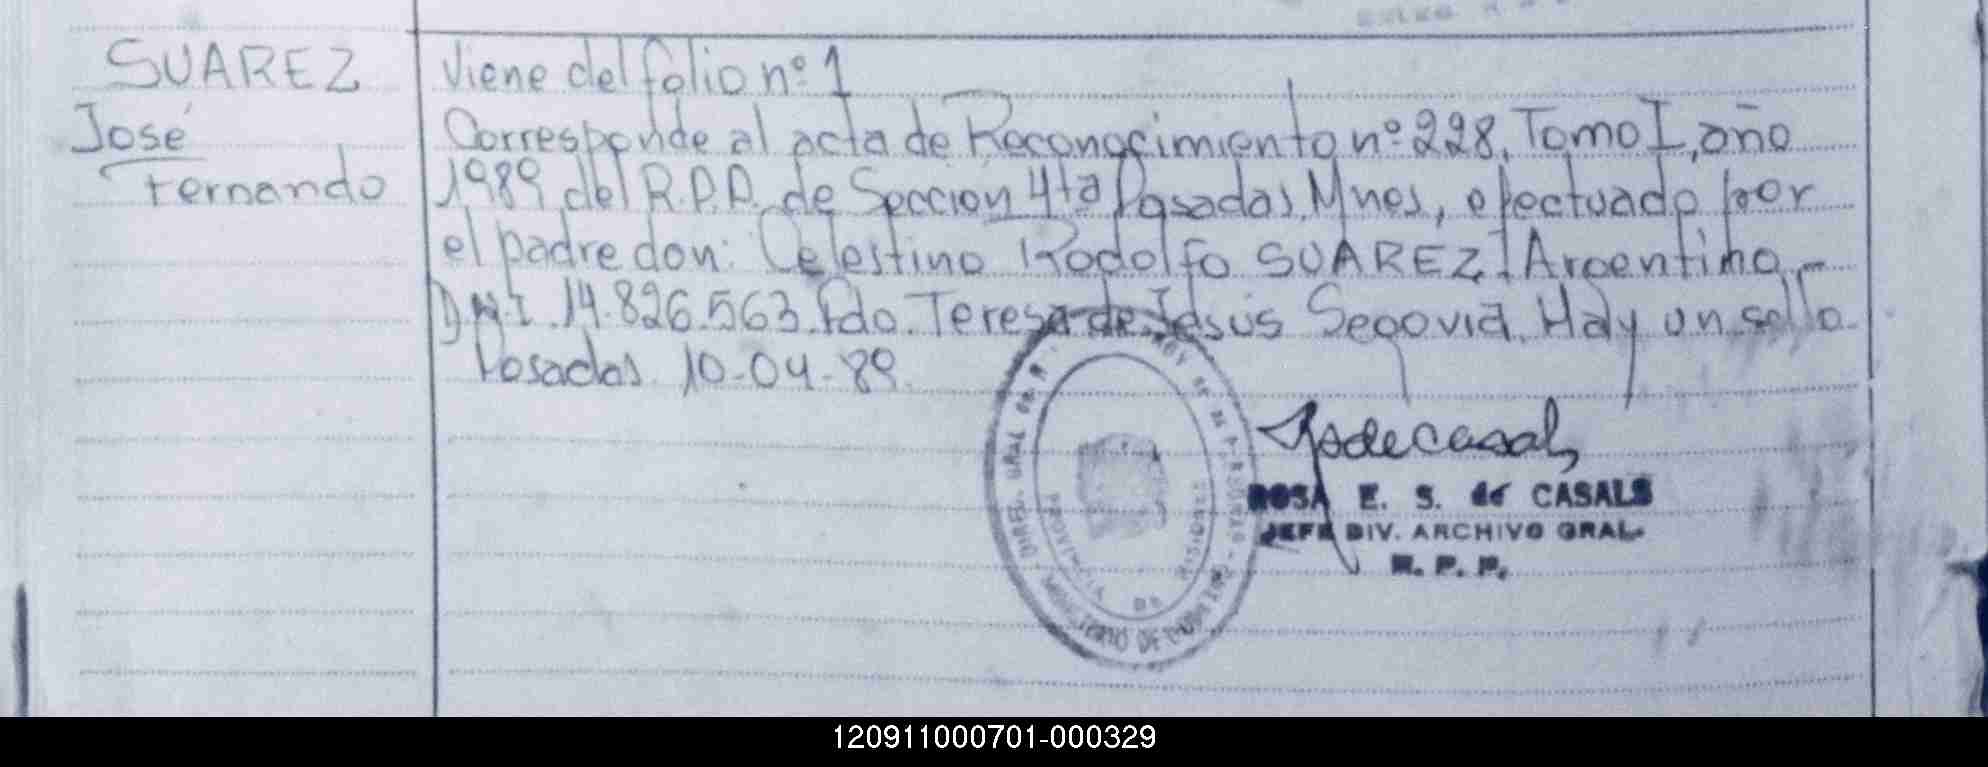 SUAREZ
José
Fernando
Viene del folio nº 1
Corresponde al acta de Reconocimiento nº 228, Tomo I, año
1989 del R.P.P. de Sección 4ta Posadas, Mnes, efectuado por
el padre don: Celestino Rodolfo SUAREZ, Argentino
D.N.I. 14.826.563. fdo. Teresa de Jesús Segovia. Hay un sello
Posadas 10-04-89.
PROVINCIA DE MISIONES
ROSA E. S. de CASALS
JEFE DIV. ARCHIVO GRAL.
R. P. P.
120911000701-000329